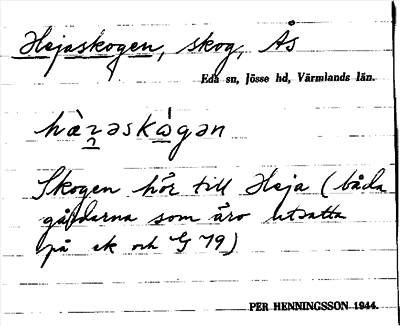 Hejaskogen, skog, Ås
Eda sn, Jösse hd, Värmlands län.
Skogen hör till Heja (båda
gårdarna som äro utsatta
på ek och G 79)
PER HENNINGSSON 1944.